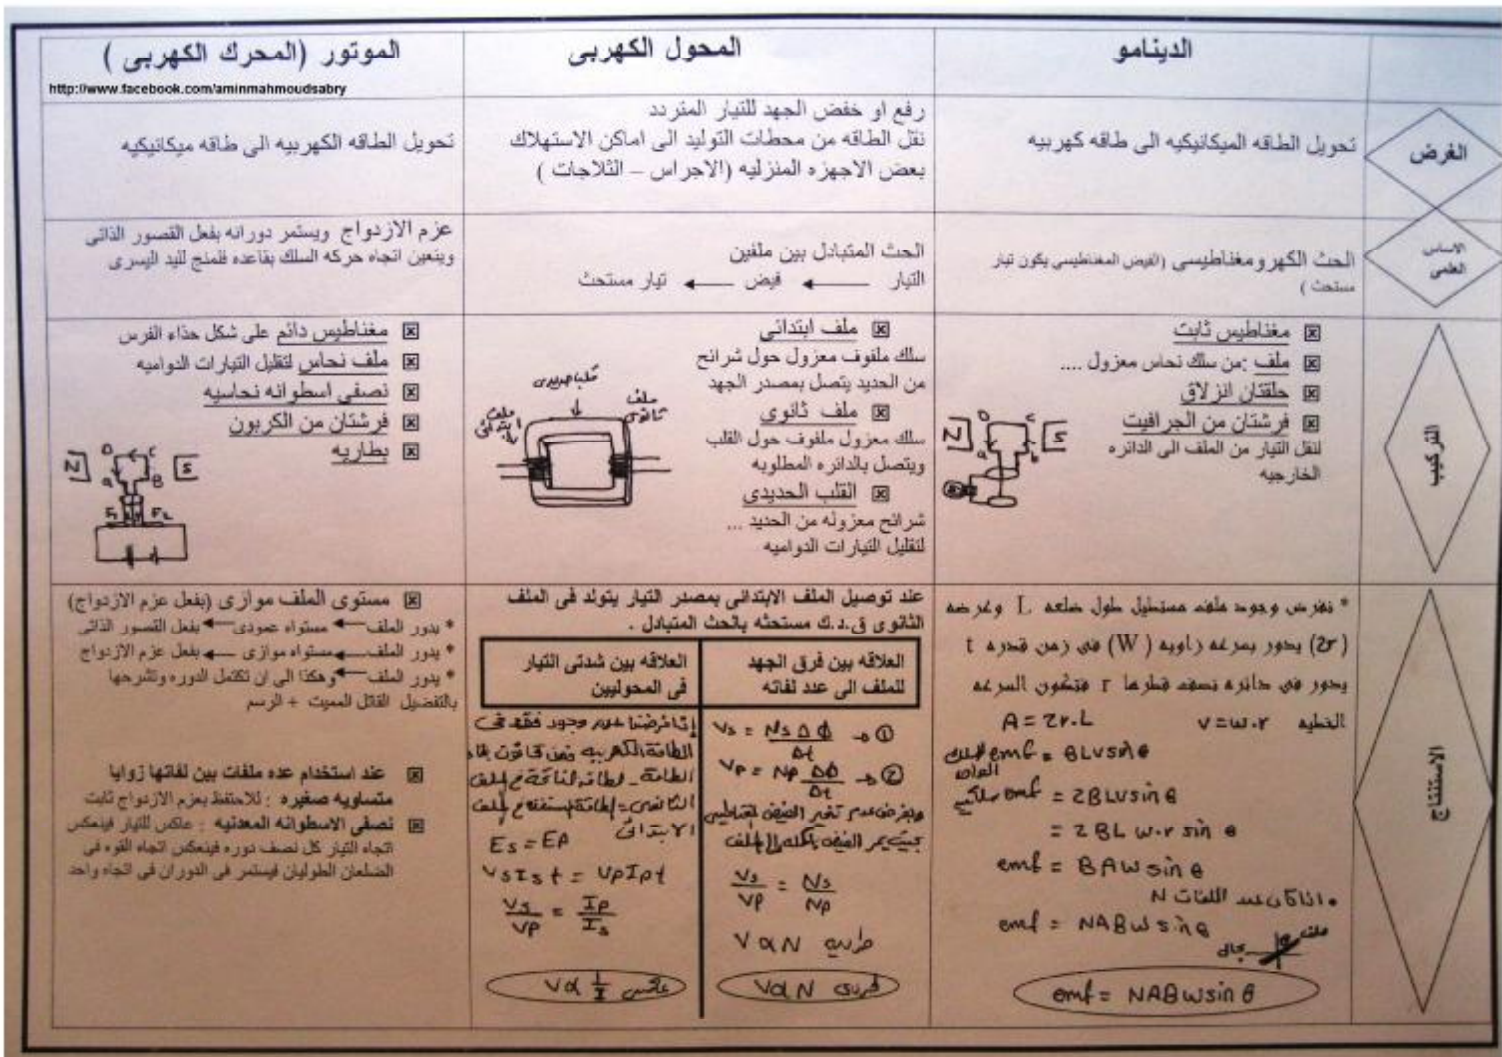 الدينامو
المحول الكهربى
الموتور (المحرك الكهربى )
http://www.facebook.com/aminmahmoudsabry
الغرض
تحويل الطاقه الميكانيكيه الى طاقه كهربيه
رفع او خفض الجهد للتيار المتردد
نقل الطاقه من محطات التوليد الى اماكن الاستهلاك
بعض الاجهزه المنزليه (الاجراس – الثلاجات )
تحويل الطاقه الكهربيه الى طاقه ميكانيكيه
الاساس
العلمى
الحث الكهرومغناطيسى (الفيض المغناطيسى يكون تيار
مستحث )
الحث المتبادل بين ملفين
التيار ← فيض ← تيار مستحث
عزم الازدواج ويستمر دورانه بفعل القصور الذاتى
ويتعين اتجاه حركه السلك بقاعده فلمنج لليد اليسرى
التركيب
☒ مغناطيس ثابت
☒ ملف :من سلك نحاس معزول ....
☒ حلقتان انزلاق
☒ فرشتان من الجرافيت
لنقل التيار من الملف الى الدائره
الخارجيه
N D C S
☒ ملف ابتدائى
سلك ملفوف معزول حول شرائح
من الحديد يتصل بمصدر الجهد
☒ ملف ثانوى
سلك معزول ملفوف حول القلب
ويتصل بالدائره المطلوبه
☒ القلب الحديدى
شرائح معزوله من الحديد ...
لتقليل التيارات الدواميه
ملف
ثانوى
ملف
ابتدائى
☒ مغناطيس دائم على شكل حذاء الفرس
☒ ملف نحاس لتقليل التيارات الدواميه
☒ نصفى اسطوانه نحاسيه
☒ فرشتان من الكربون
☒ بطاريه
N D C S
a B
F1 F2
الاستنتاج
* نفرض وجود ملف مستطيل طول ضلعه L وعرضه
(2r) يدور بسرعه زاويه ( W ) فى زمن قدره t
يدور فى دائره نصف قطرها r فتكون السرعه
الخطيه v = w.r A = 2r.L
emf = BLV sin θ
emf = 2BLV sin θ
= 2 BL w.r sin θ
emf = BAW sin θ
• اذا كان عدد اللفات N
emf = NABW sin θ
ملف
مجال
emf = NABW sin θ
عند توصيل الملف الابتدائى بمصدر التيار يتولد فى الملف
الثانوى ق.د.ك مستحثه بالحث المتبادل .
العلاقه بين فرق الجهد
للملف الى عدد لفاته
Vs = Ns Δφ / Δt → ①
Vp = Np Δφ / Δt → ②
Vs / Vp = Ns / Np
V α N طرديه
V α N طردى
العلاقه بين شدتى التيار
فى المحوليين
إذا فرضنا عدم وجود فقد فى
الطاقة الكهربيه فمن قانون بقاء
الابتدائى
Es = Ep
Vs Is t = Vp Ip t
Vs / Vp = Ip / Is
V α 1 / I عكسى
☒ مستوى الملف موازى (بفعل عزم الازدواج)
* يدور الملف ← مستواه عمودى ← بفعل القصور الذاتى
* يدور الملف ← مستواه موازى ← بفعل عزم الازدواج
* يدور الملف ← وهكذا الى ان تكتمل الدوره وتشرحها
بالتفضيل القاتل المميت + الرسم
☒ عند استخدام عده ملفات بين لفاتها زوايا
متساويه صغيره : للاحتفظ بعزم الازدواج ثابت
☒ نصفى الاسطوانه المعدنيه : عاكس للتيار فينعكس
اتجاه التيار كل نصف دوره فينعكس اتجاه القوه فى
الضلعان الطوليان فيستمر فى الدوران فى اتجاه واحد